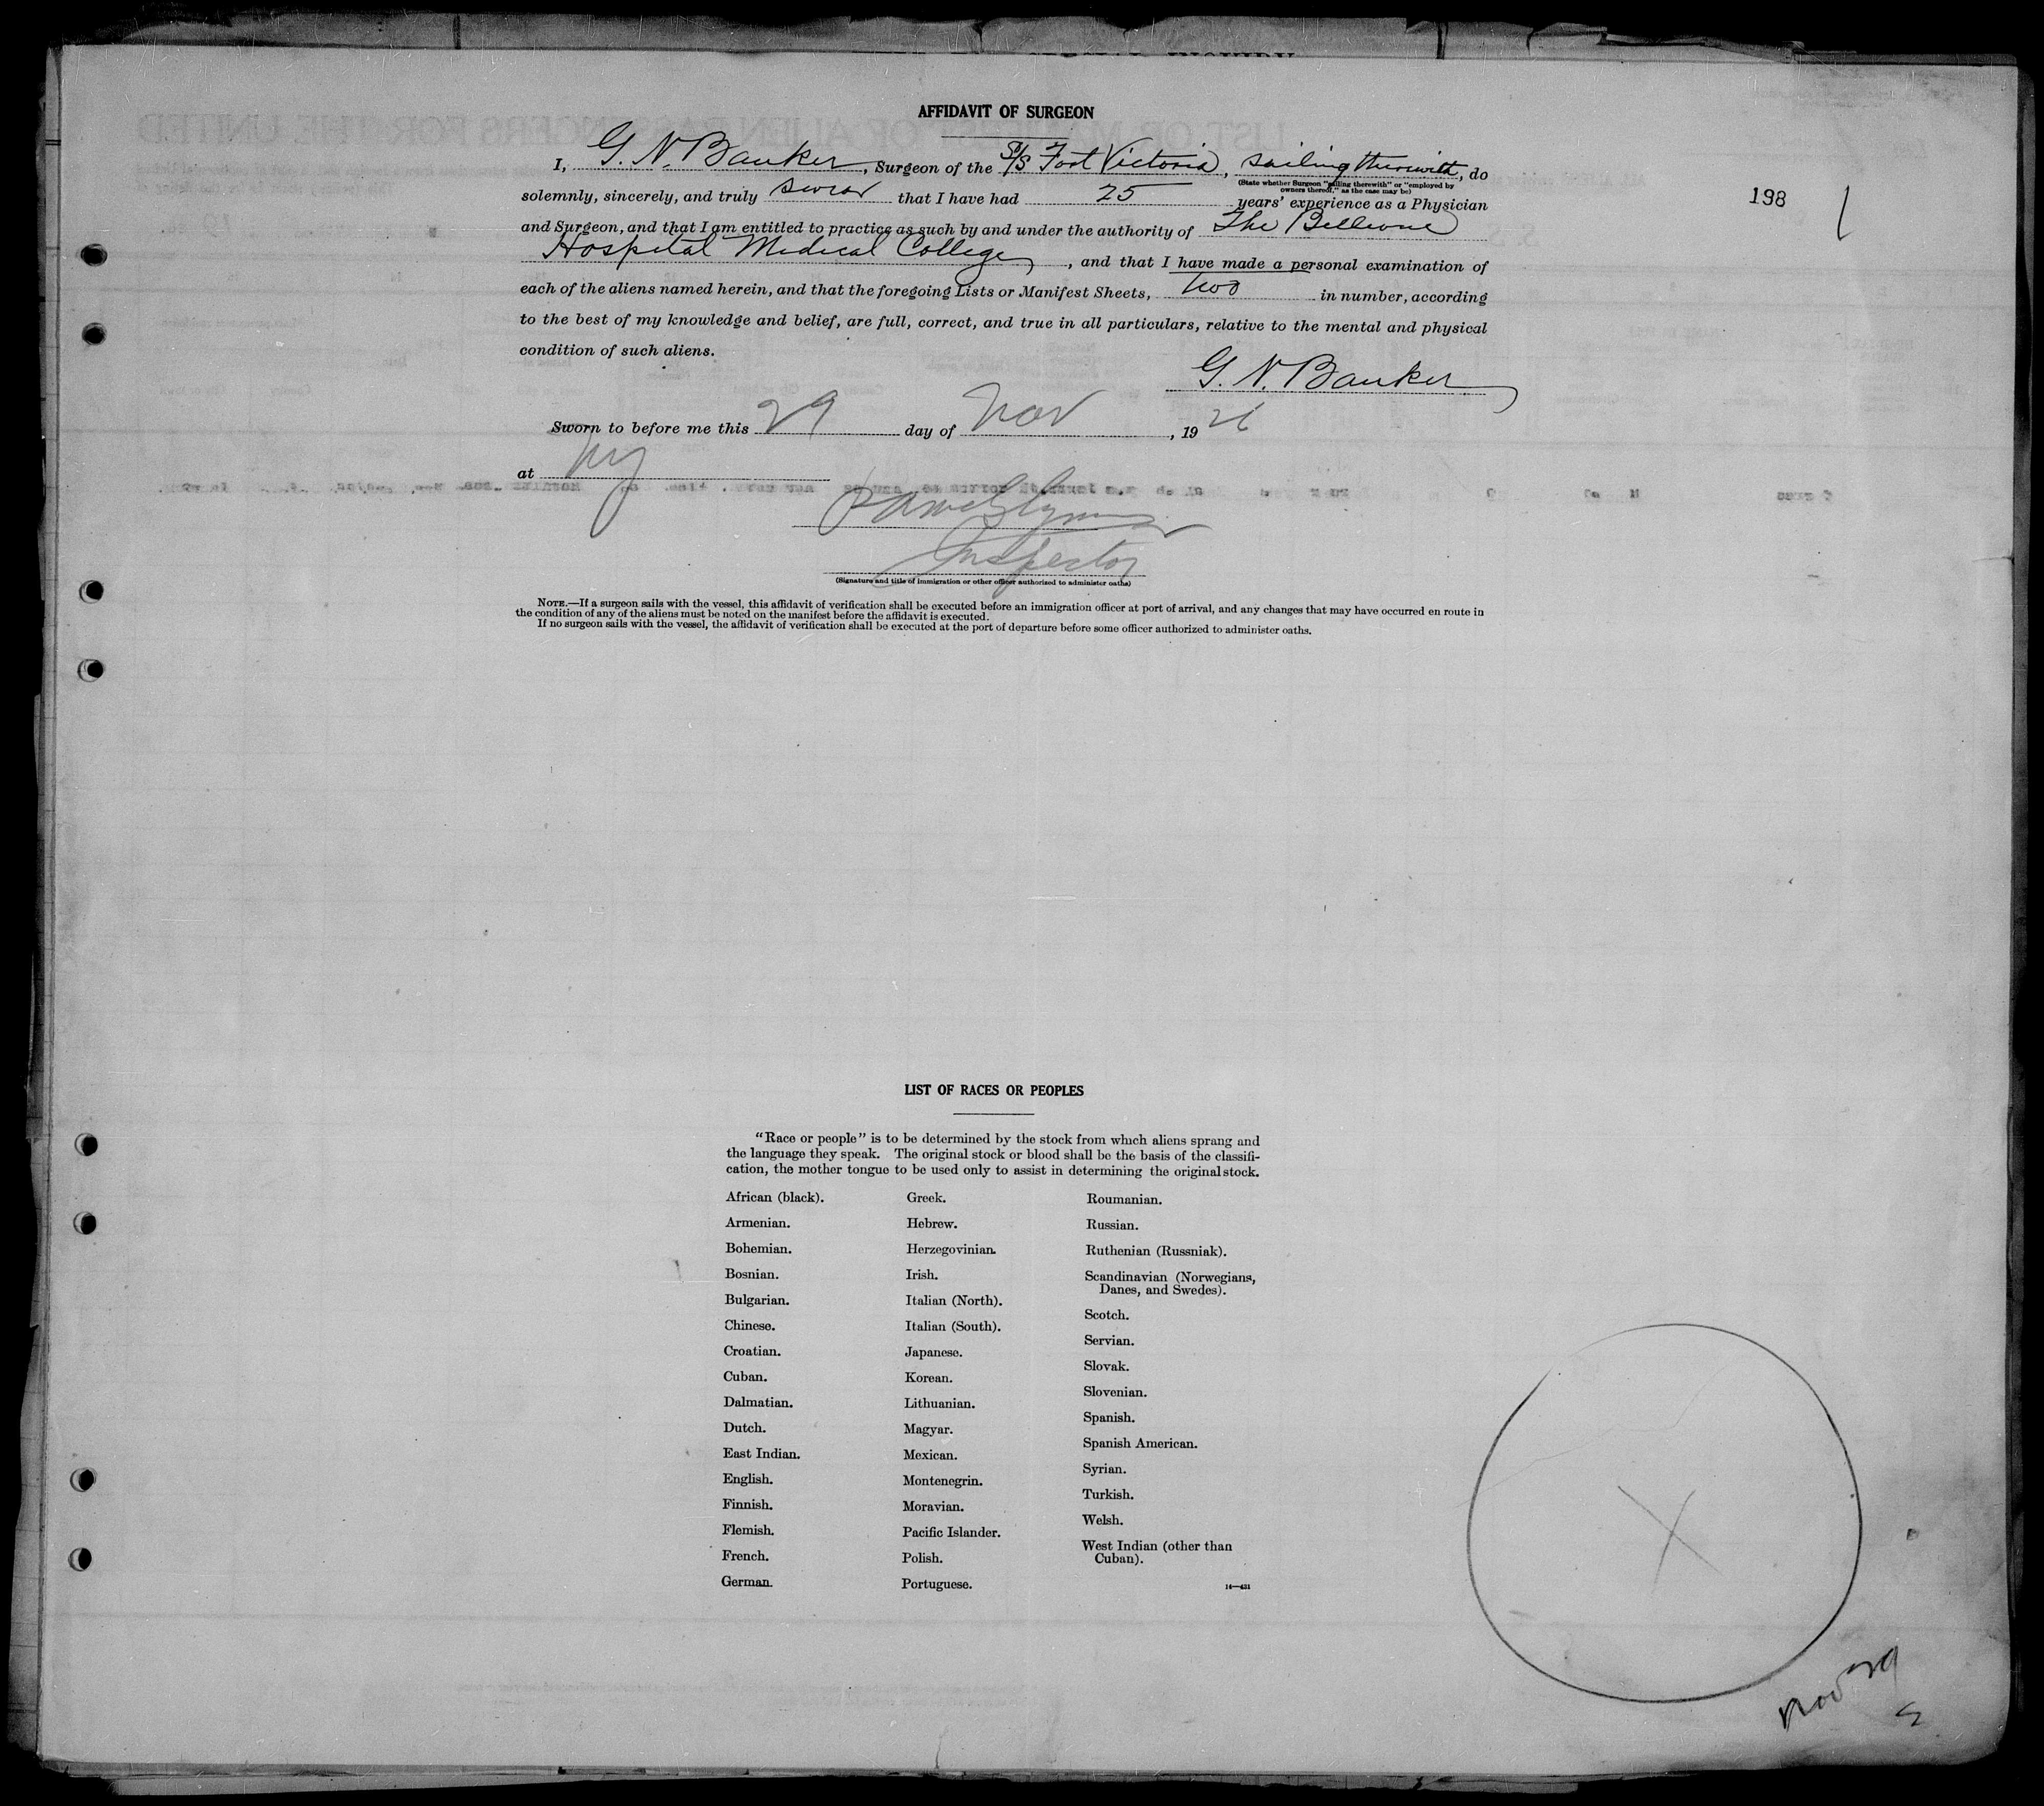 AFFIDAVIT OF SURGEON
I, G. N. Banker, Surgeon of the S/S Fort Victoria, sailing therewith, do
(State whether Surgeon "sailing therewith" or "employed by
owners thereof," as the case may be)
solemnly, sincerely, and truly swear that I have had 25 years' experience as a Physician
198
and Surgeon, and that I am entitled to practice as such by and under the authority of The Bellevue
Hospital Medical College, and that I have made a personal examination of
each of the aliens named herein, and that the foregoing Lists or Manifest Sheets, two in number, according
to the best of my knowledge and belief, are full, correct, and true in all particulars, relative to the mental and physical
condition of such aliens.
G. N. Banker
Sworn to before me this 29 day of Nov, 1926
at NY
Inspector
(Signature and title of immigration or other officer authorized to administer oaths)
NOTE.—If a surgeon sails with the vessel, this affidavit of verification shall be executed before an immigration officer at port of arrival, and any changes that may have occurred en route in
the condition of any of the aliens must be noted on the manifest before the affidavit is executed.
If no surgeon sails with the vessel, the affidavit of verification shall be executed at the port of departure before some officer authorized to administer oaths.
LIST OF RACES OR PEOPLES
"Race or people" is to be determined by the stock from which aliens sprang and
the language they speak. The original stock or blood shall be the basis of the classifi-
cation, the mother tongue to be used only to assist in determining the original stock.
African (black).
Armenian.
Bohemian.
Bosnian.
Bulgarian.
Chinese.
Croatian.
Cuban.
Dalmatian.
Dutch.
East Indian.
English.
Finnish.
Flemish.
French.
German.
Greek.
Hebrew.
Herzegovinian.
Irish.
Italian (North).
Italian (South).
Japanese.
Korean.
Lithuanian.
Magyar.
Mexican.
Montenegrin.
Moravian.
Pacific Islander.
Polish.
Portuguese.
Roumanian.
Russian.
Ruthenian (Russniak).
Scandinavian (Norwegians,
Danes, and Swedes).
Scotch.
Servian.
Slovak.
Slovenian.
Spanish.
Spanish American.
Syrian.
Turkish.
Welsh.
West Indian (other than
Cuban).
14—431
X
Nov 29